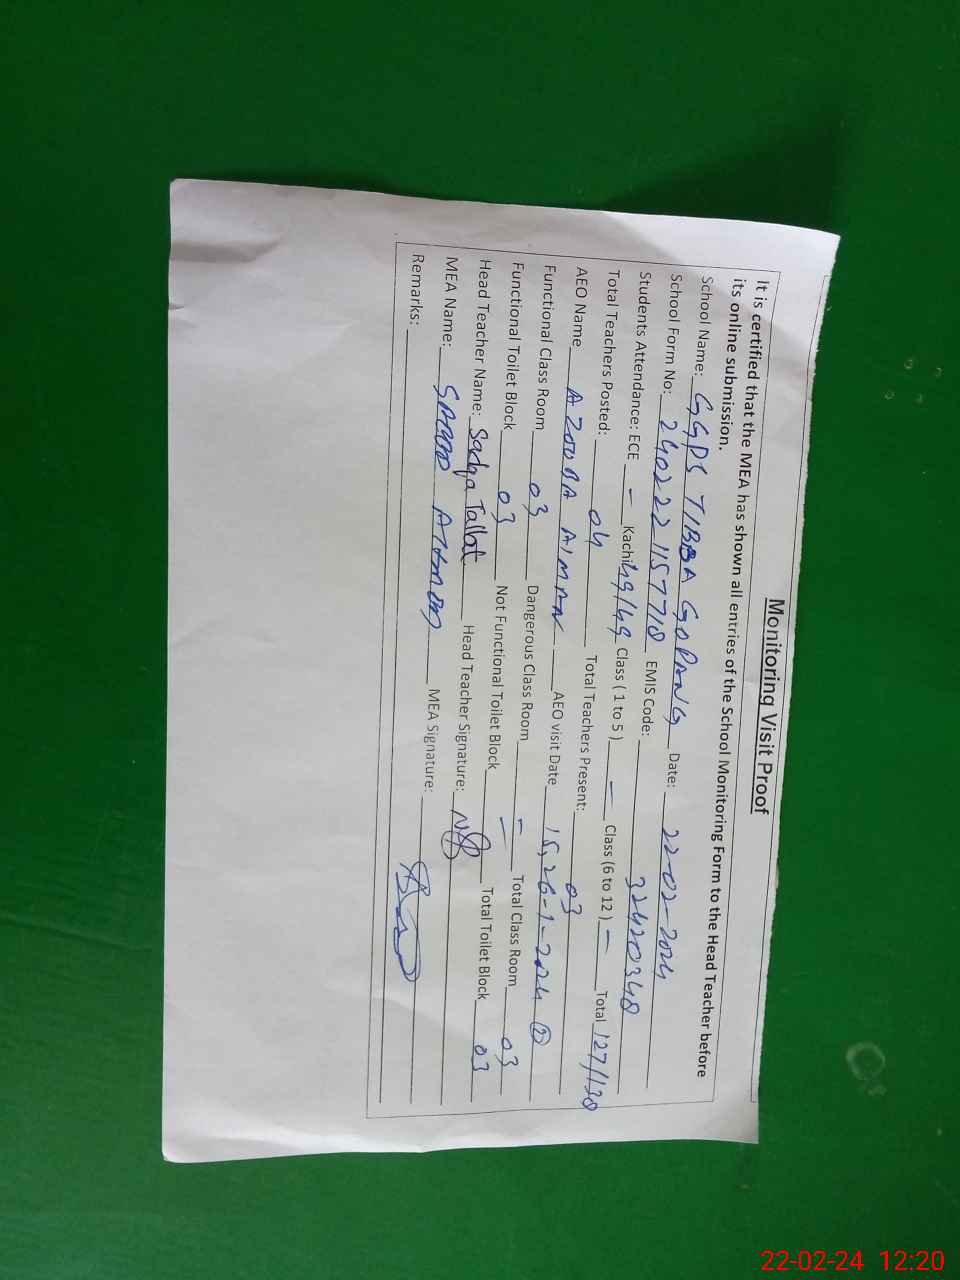 Monitoring Visit Proof
It is certified that the MEA has shown all entries of the School Monitoring Form to the Head Teacher before
its online submission.
School Name: GGPS TIBBA GOPANG Date: 22-02-2024
School Form No: 2402221157718 EMIS Code: 32420348
Students Attendance: ECE - Kachi 49/49 Class ( 1 to 5 ) - Class (6 to 12 ) - Total 127/130
Total Teachers Posted: 04 Total Teachers Present: 03
AEO Name AZOUBA AIMAN AEO visit Date 15,26-1-2024 ②
Functional Class Room 03 Dangerous Class Room - Total Class Room 03
Functional Toilet Block 03 Not Functional Toilet Block - Total Toilet Block 03
Head Teacher Name: Sadqa Tallat Head Teacher Signature:
MEA Name: MEA Signature:
Remarks:
22-02-24 12:20